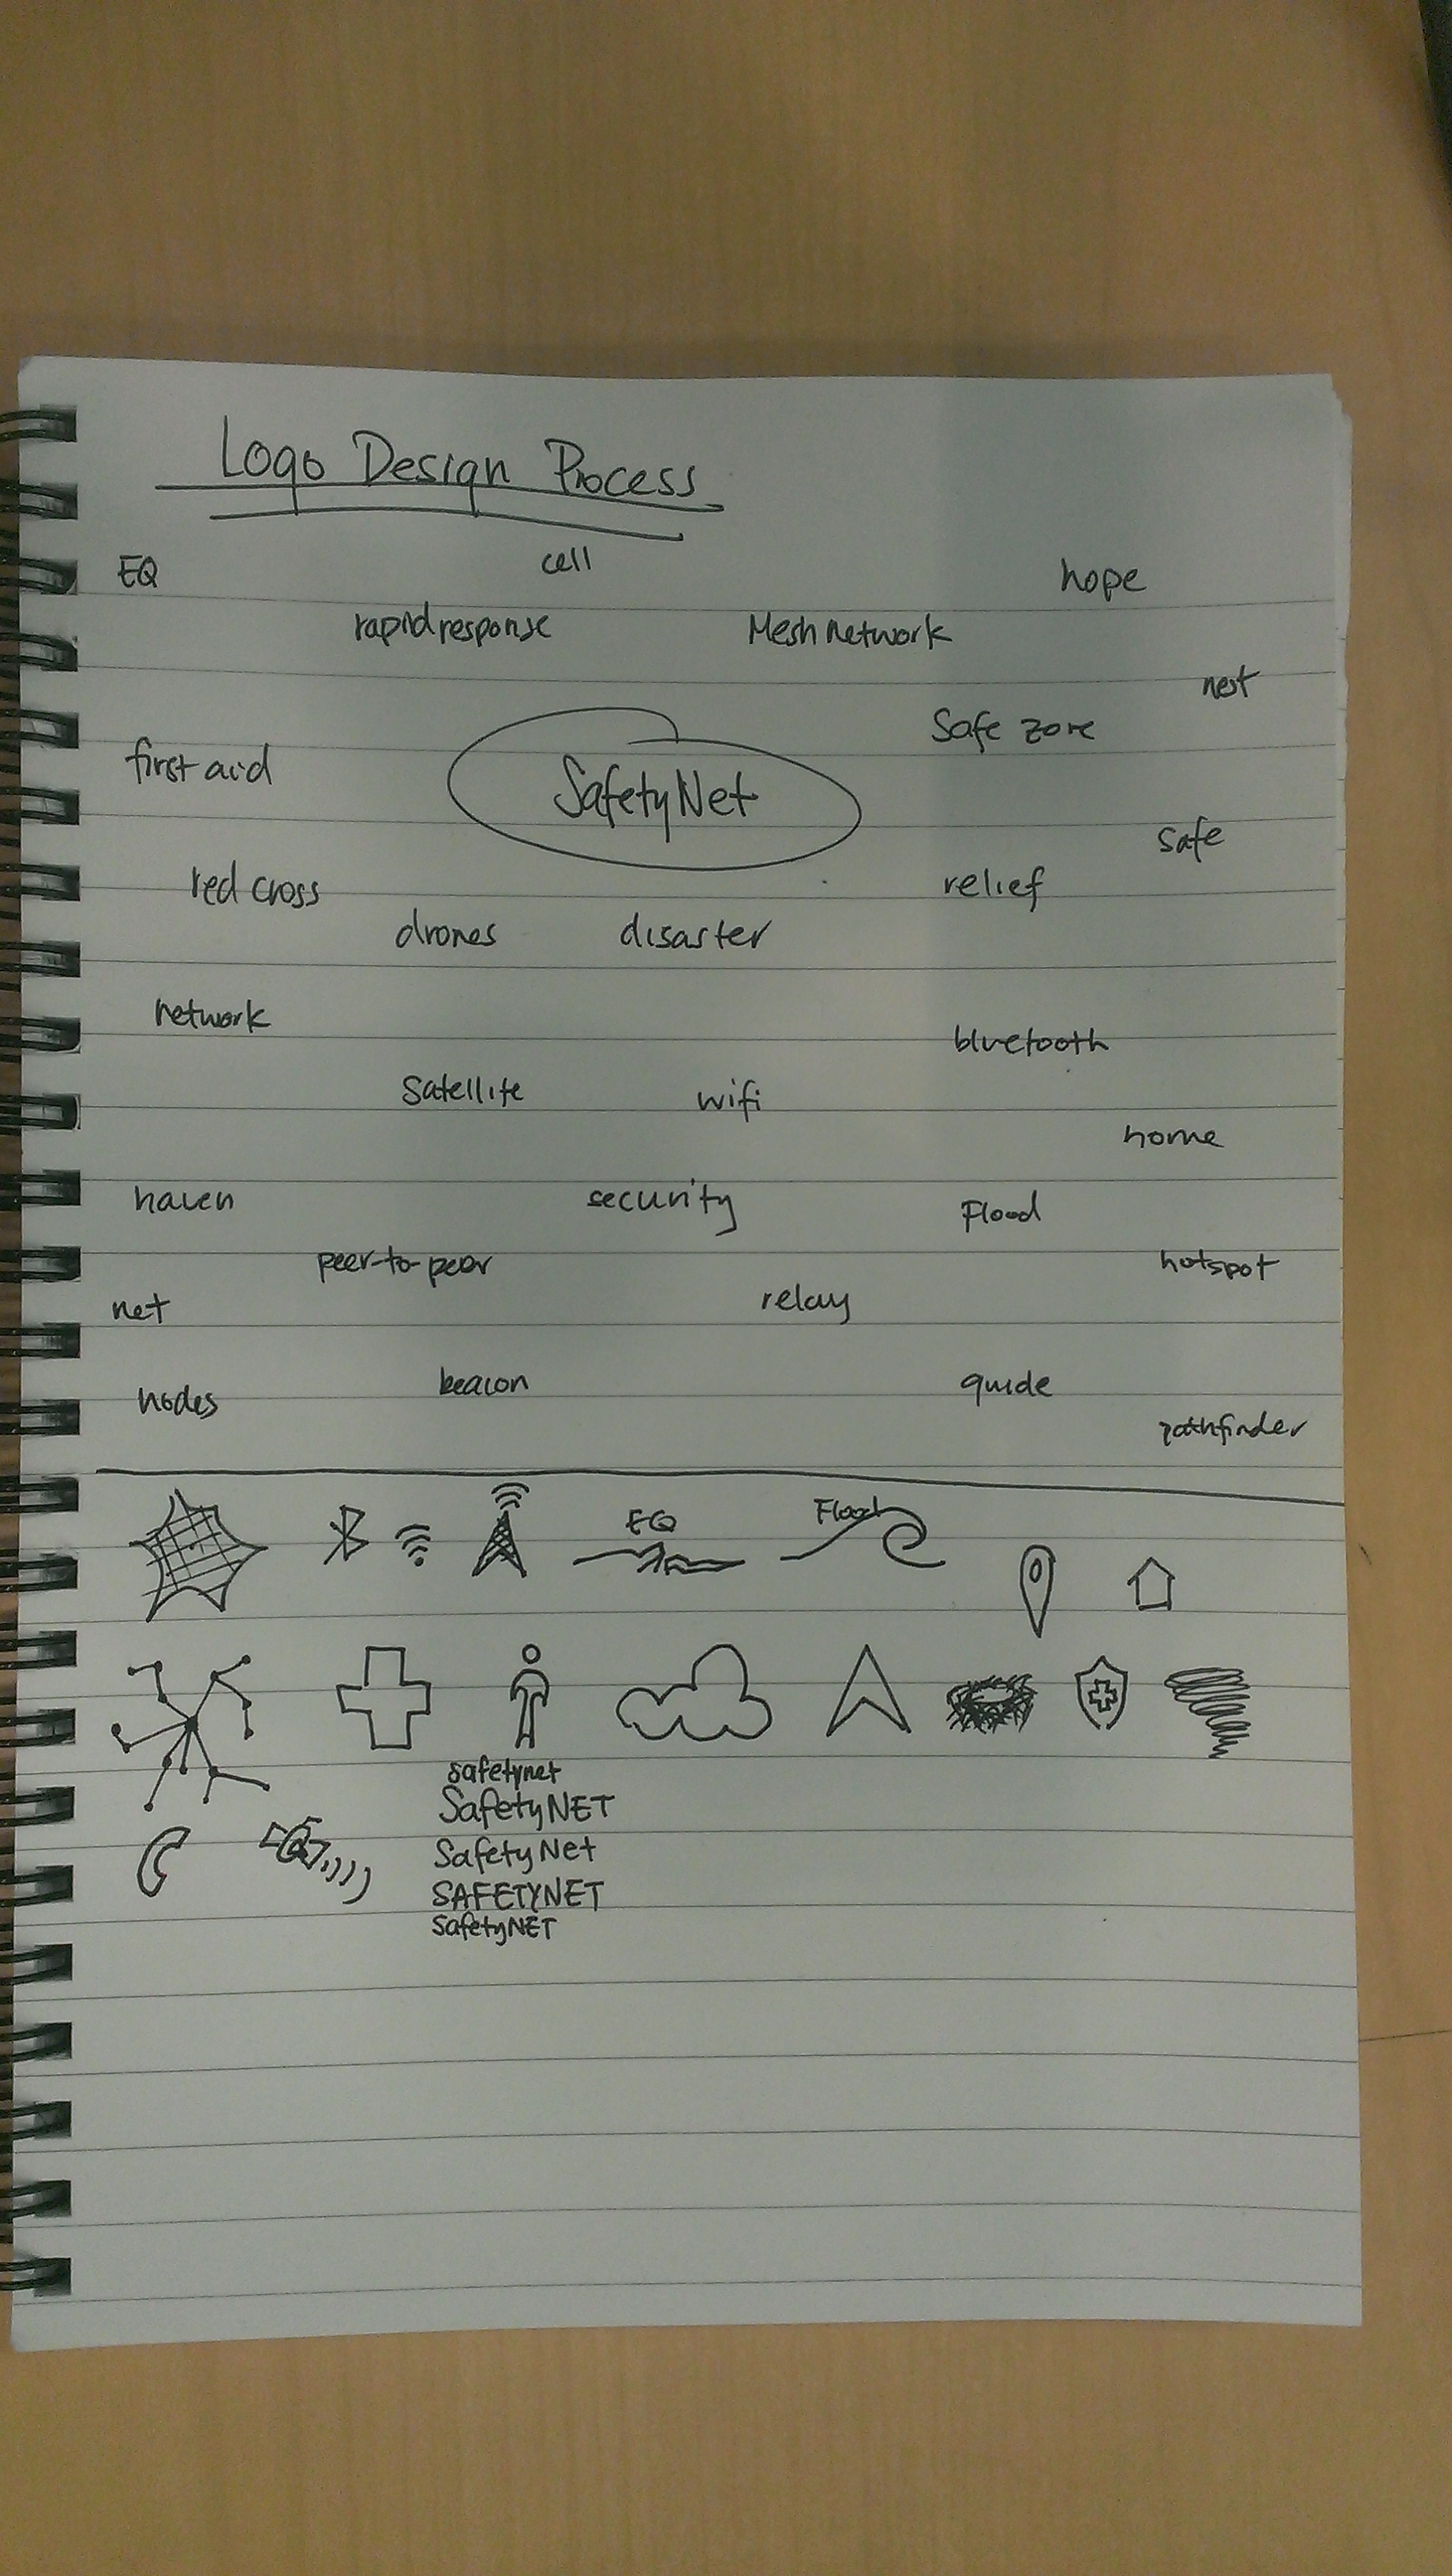 Logo Design Process
EQ
cell
hope
rapid response
Mesh network
nest
Safe zone
first aid
SafetyNet
safe
red cross
relief
drones
disaster
network
bluetooth
satellite
wifi
home
haven
security
Flood
peer-to-peer
hotspot
net
relay
nodes
beacon
guide
pathfinder
EQ
Flood
safetynet
SafetyNET
SafetyNet
SAFETYNET
SafetyNET